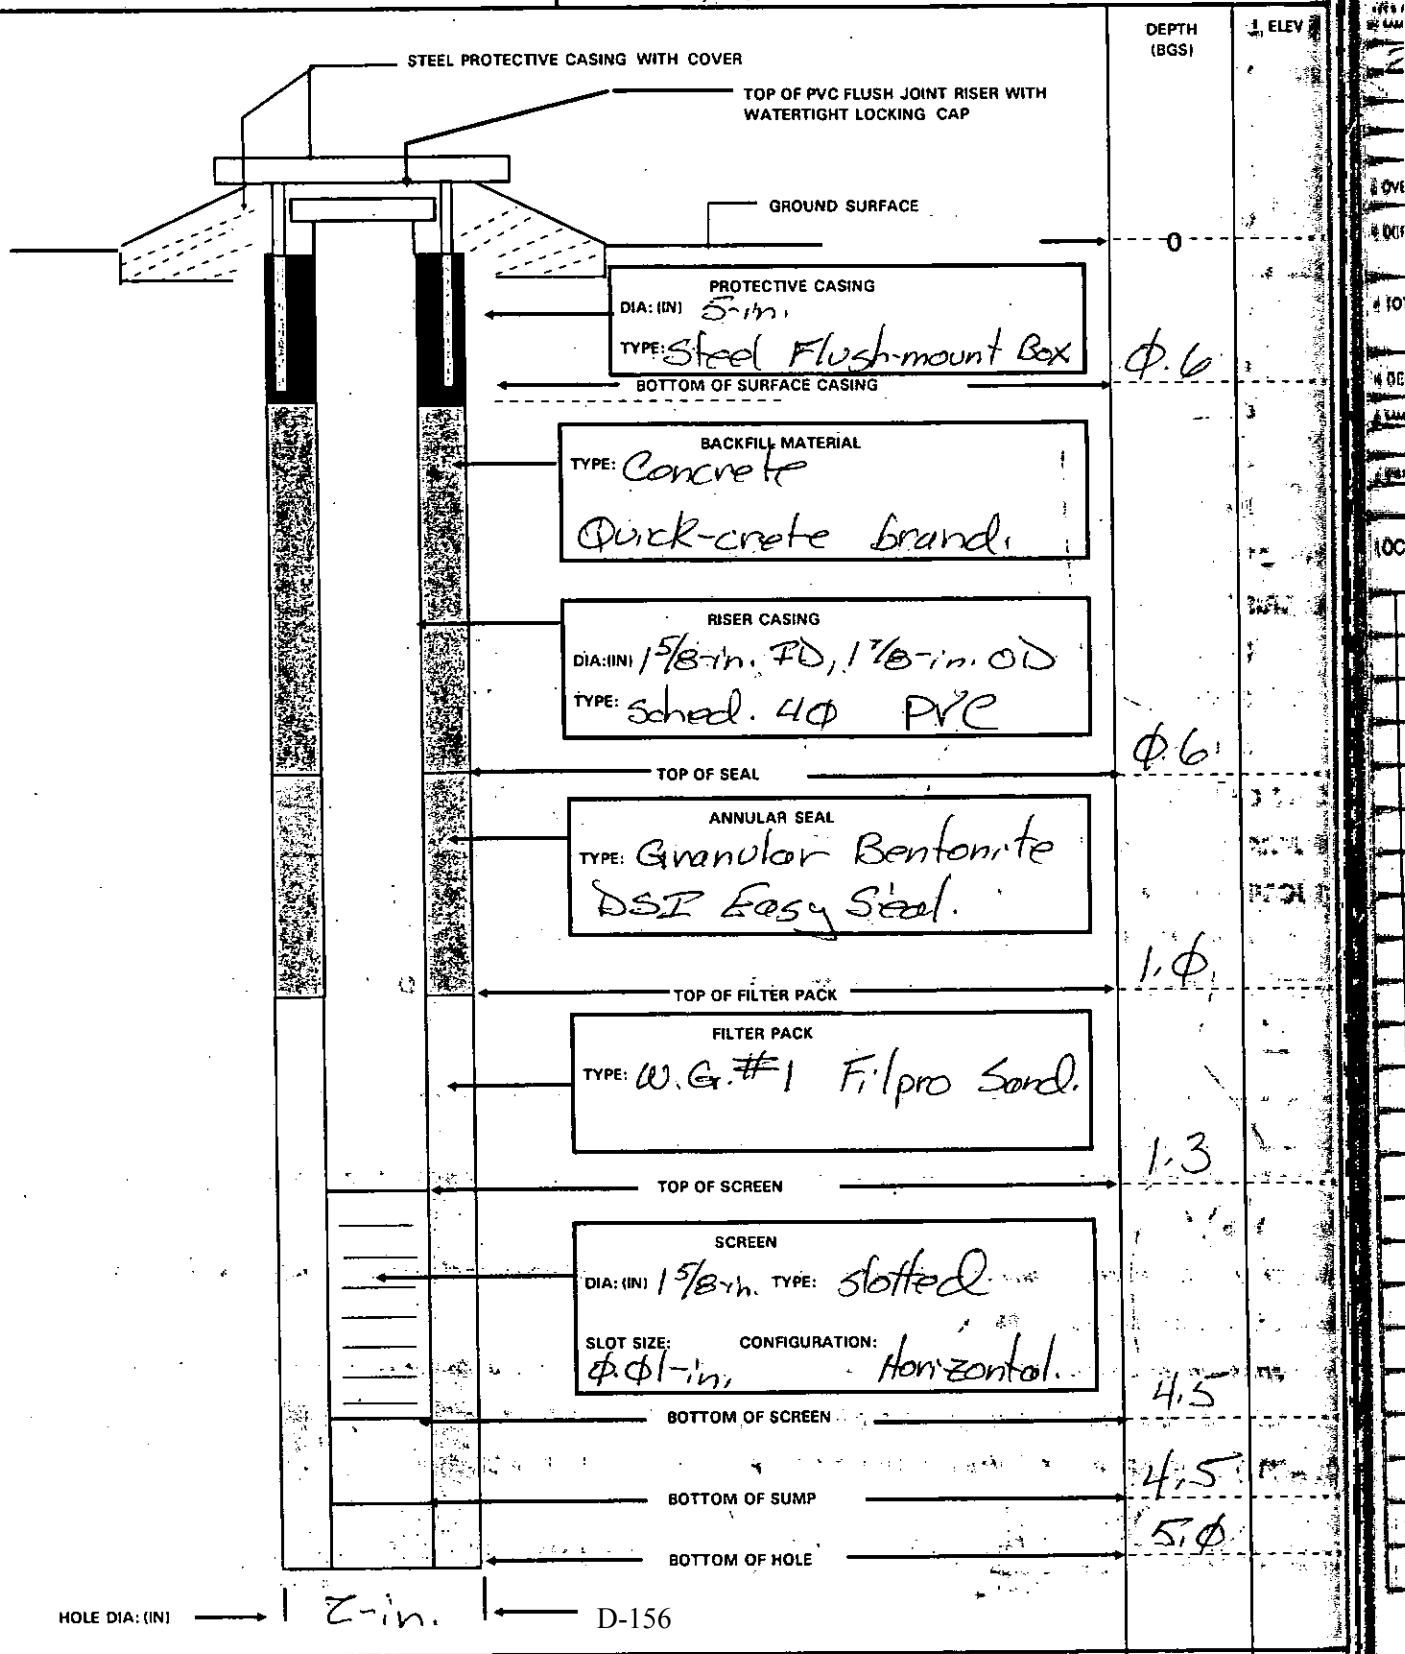 DEPTH
(BGS)
ELEV
STEEL PROTECTIVE CASING WITH COVER
TOP OF PVC FLUSH JOINT RISER WITH
WATERTIGHT LOCKING CAP
GROUND SURFACE
0
PROTECTIVE CASING
DIA: (IN) 5-in.
TYPE: Steel Flush-mount Box
BOTTOM OF SURFACE CASING
Φ.6
BACKFILL MATERIAL
TYPE: Concrete
Quick-crete brand.
RISER CASING
DIA:(IN) 1 5/8-in. ID, 1 7/8-in. OD
TYPE: Sched. 4Φ PVC
TOP OF SEAL
Φ.6
ANNULAR SEAL
TYPE: Granular Bentonite
DSI Easy Seal.
TOP OF FILTER PACK
1.Φ
FILTER PACK
TYPE: W.G. #1 Filpro Sand.
TOP OF SCREEN
1.3
SCREEN
DIA: (IN) 1 5/8-in. TYPE: Slotted
SLOT SIZE: CONFIGURATION:
Φ.Φ1-in. Horizontal.
BOTTOM OF SCREEN
4.5
BOTTOM OF SUMP
4.5
BOTTOM OF HOLE
5.Φ
HOLE DIA: (IN) 2-in.
D-156